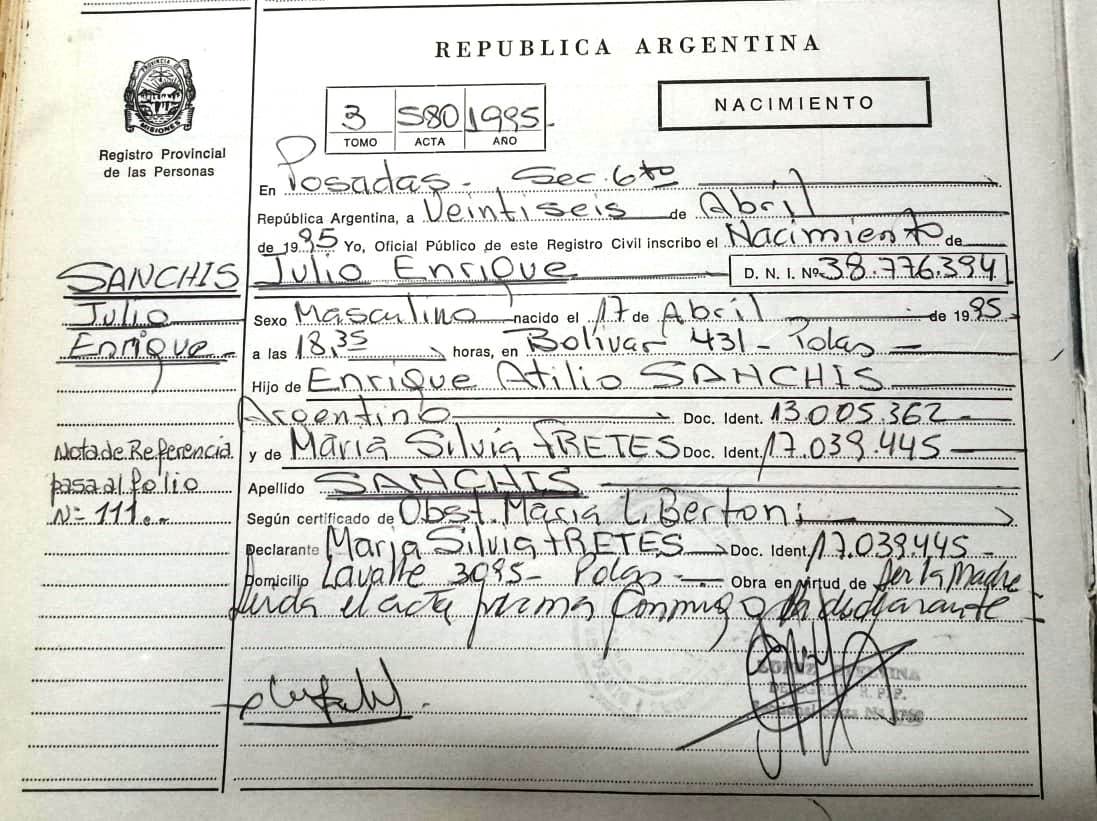 REPUBLICA ARGENTINA
PROVINCIA DE MISIONES
Registro Provincial
de las Personas
3 580 1995.
TOMO ACTA AÑO
NACIMIENTO
En Posadas - Sec. 6to
República Argentina, a Veintiseis de Abril
de 1995 Yo, Oficial Público de este Registro Civil inscribo el Nacimiento de
Julio Enrique D. N. I. Nº 38.776.394
SANCHIS
Julio
Enrique
Sexo Masculino nacido el 17 de Abril de 1995
a las 18,35 horas, en Bolivar 431 - Pdas
Hijo de Enrique Atilio SANCHIS
Argentino Doc. Ident. 13.005.362
y de María Silvia FRETES Doc. Ident. 17.039.445
Nota de Referencia
pasa al folio
Nº 111
Apellido SANCHIS
Según certificado de Obst. María L. Bertoni
Declarante María Silvia FRETES Doc. Ident. 17.039.445
Domicilio Lavalle 3095 - Pdas Obra en virtud de Ser la Madre
Leida el acta firma conmigo la declarante